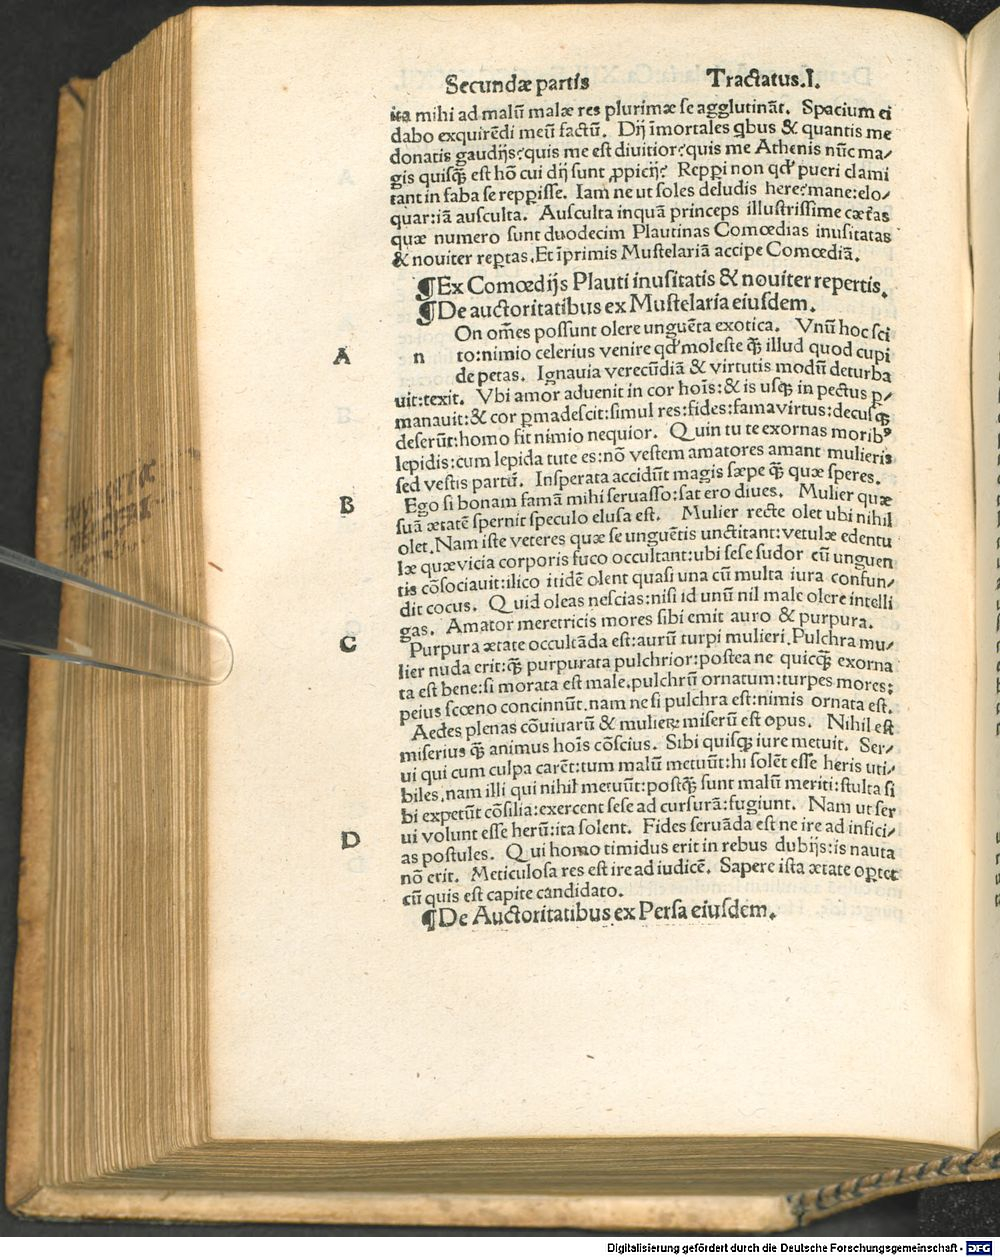 Secundæ partis Tractatus.I.
ita mihi ad malū malæ res plurimæ se agglutināt. Spacium ei
dabo exquirēdi meū factū. Dij īmortales qbus & quantis me
donatis gaudijs? quis me est diuitior? quis me Athenis nūc ma/
gis quisq̃ est hō cui dij sunt ꝓpicij? Repꝑi non qd' pueri clami
tant in faba se repꝑisse. Iam ne ut soles deludis here? mane: elo/
quar: iā ausculta. Ausculta inquā princeps illustrissime cæt̃as
quæ numero sunt duodecim Plautinas Comœdias inusitatas
& nouiter reꝑtas. Et īprimis Mustelariā accipe Comœdiā.
¶Ex Comœdijs Plauti inusitatis & nouiter repertis.
¶De auctoritatibus ex Mustelaria eiusdem.
On om̄es possunt olere unguēta exotica. Vnū hoc sci
A n to: nimio celerius venire qd' moleste q̃ illud quod cupi
de petas. Ignauia verecūdiā & virtutis modū deturba
uit: texit. Vbi amor aduenit in cor hoīs: & is usq; in pectus ꝑ/
manauit: & cor ꝑmadescit: simul res: fides: fama virtus: decusq;
deserūt: homo fit nimio nequior. Quin tu te exornas moribꝰ
lepidis: cum lepida tute es: nō vestem amatores amant mulieris
sed vestis partū. Insperata accidūt magis sæpe q̃ quæ speres.
B Ego si bonam famā mihi seruasso: sat ero diues. Mulier quæ
suā ætatē spernit speculo elusa est. Mulier recte olet ubi nihil
olet. Nam iste veteres quæ se unguētis unctitant: vetulæ edentu
læ quæ vicia corporis fuco occultant: ubi sese sudor cū unguen
tis cōsociauit: ilico itidē olent quasi una cū multa iura confun/
dit cocus. Quid oleas nescias: nisi id unū nil male olere intelli
gas. Amator meretricis mores sibi emit auro & purpura.
C Purpura ætate occultāda est: aurū turpi mulieri. Pulchra mu/
lier nuda erit: q̃ purpurata pulchrior: postea ne quicq̃ exorna
ta est bene: si morata est male. pulchrū ornatum: turpes mores:
peius scœno concinnūt. nam ne si pulchra est: nimis ornata est.
Aedes plenas cōuiuarū & mulieꝝ miserū est opus. Nihil est
miserius q̃ animus hoīs cōscius. Sibi quisq; iure metuit. Ser/
ui qui cum culpa carēt: tum malū metuūt: hi solēt esse heris uti/
biles. nam illi qui nihil metuūt: postq̃ sunt malū meriti: stulta si
bi expetūt cōsilia: exercent sese ad cursurā: fugiunt. Nam ut ser
D ui volunt esse herū: ita solent. Fides seruāda est ne ire ad infici/
as postules. Qui homo timidus erit in rebus dubijs: is nauta
nō erit. Meticulosa res est ire ad iudicē. Sapere ista ætate oꝑtet
cū quis est capite candidato.
¶De Auctoritatibus ex Persa eiusdem.
Digitalisierung gefördert durch die Deutsche Forschungsgemeinschaft - DFG